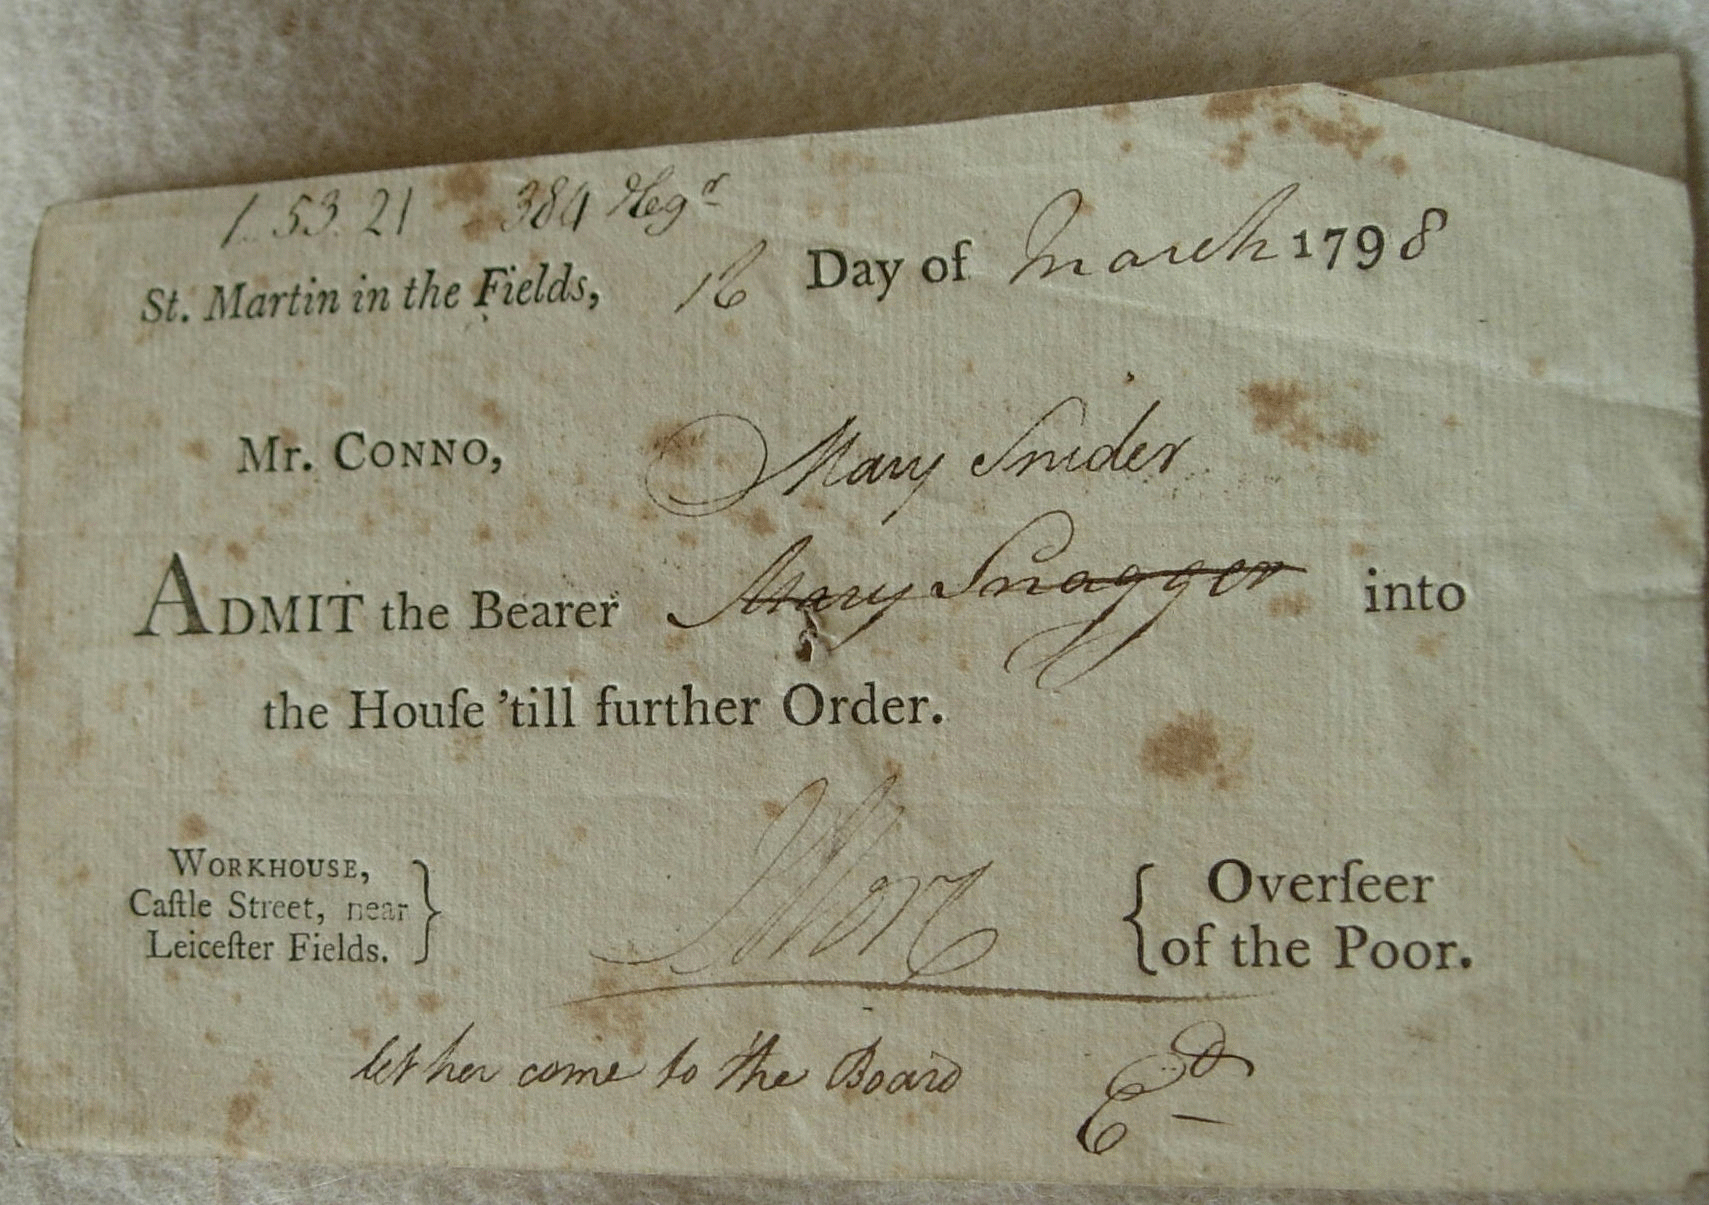 1. 53. 21 384 Regr
St. Martin in the Fields, 16 Day of March 1798
Mr. CONNO, Mary Snider
ADMIT the Bearer Mary Snagger into
the Houſe 'till further Order.
WORKHOUSE,
Caſtle Street, near
Leiceſter Fields.
Overſeer
of the Poor.
let her come to the Board